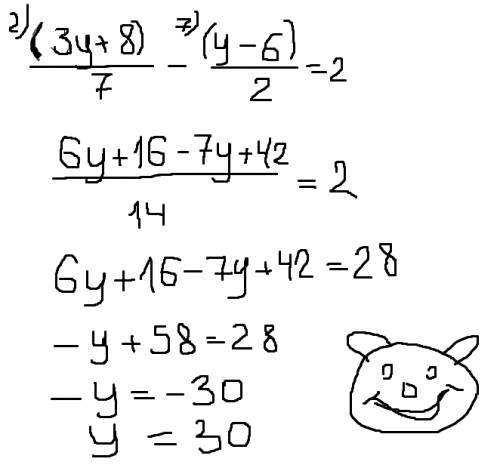 2) (3y+8)/7 - 7) (y-6)/2 =2
(6y+16-7y+42)/14 = 2
6y+16-7y+42=28
-y+58=28
-y=-30
y=30